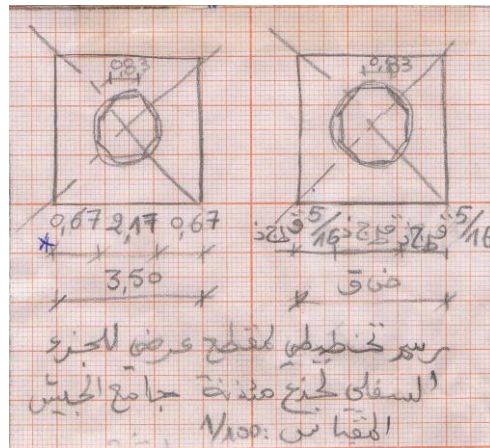 0,83 0,83
0,67 2,17 0,67 5/16 5/16
3,50
رسم تخطيطي لمقطع عرضي للجزء
السفلي لجذع مئذنة جامع الجيش
المقياس: 1/100